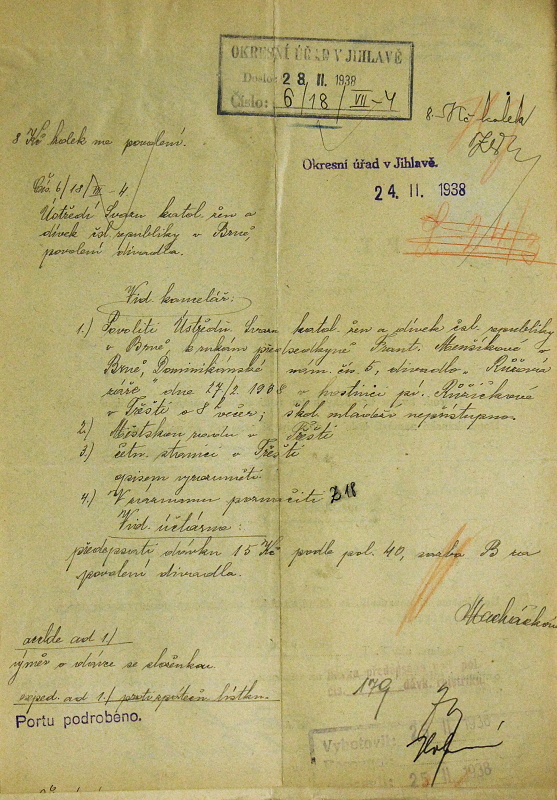 OKRESNÍ ÚŘAD V JIHLAVĚ
Došlo: 28. II. 1938
Číslo: 6/18/VII-4
8.- Kč kolek
8 Kč kolek na povolení.
Okresní úřad v Jihlavě.
24. II. 1938
Čís. 6/18/VII-4
Ústředí Svazu katol. žen a
dívek čsl. republiky v Brně,
povolení divadla.
Vid. kancelář:
1.) Povoliti Ústředí Svazu katol. žen a dívek čsl. republiky
v Brně, k rukám předsedkyně Frant. Menšíkové v
Brně, Dominikánské nám. čís. 5, divadlo „Růžová
záře" dne 27/2. 1938 v hostinci pí. Růžičkové
v Třešti o 8 večer; škol. mládeži nepřístupno.
2.) Městskou radu v Třešti
3.) četn. stanici v Třešti
opisem vyrozuměti
4.) V seznamu poznačiti Z 18
Vid. účtárna:
předepsati dávku 15 Kč podle pol. 40, sazba B za
povolení divadla.
Macháčková
acclde ad 1/
výměr o dávce se složenkou
exped. ad 1/ proto zpáteční lístku.
179
Portu podrobeno.
Vyhotovil:
1938
25. II. 1938